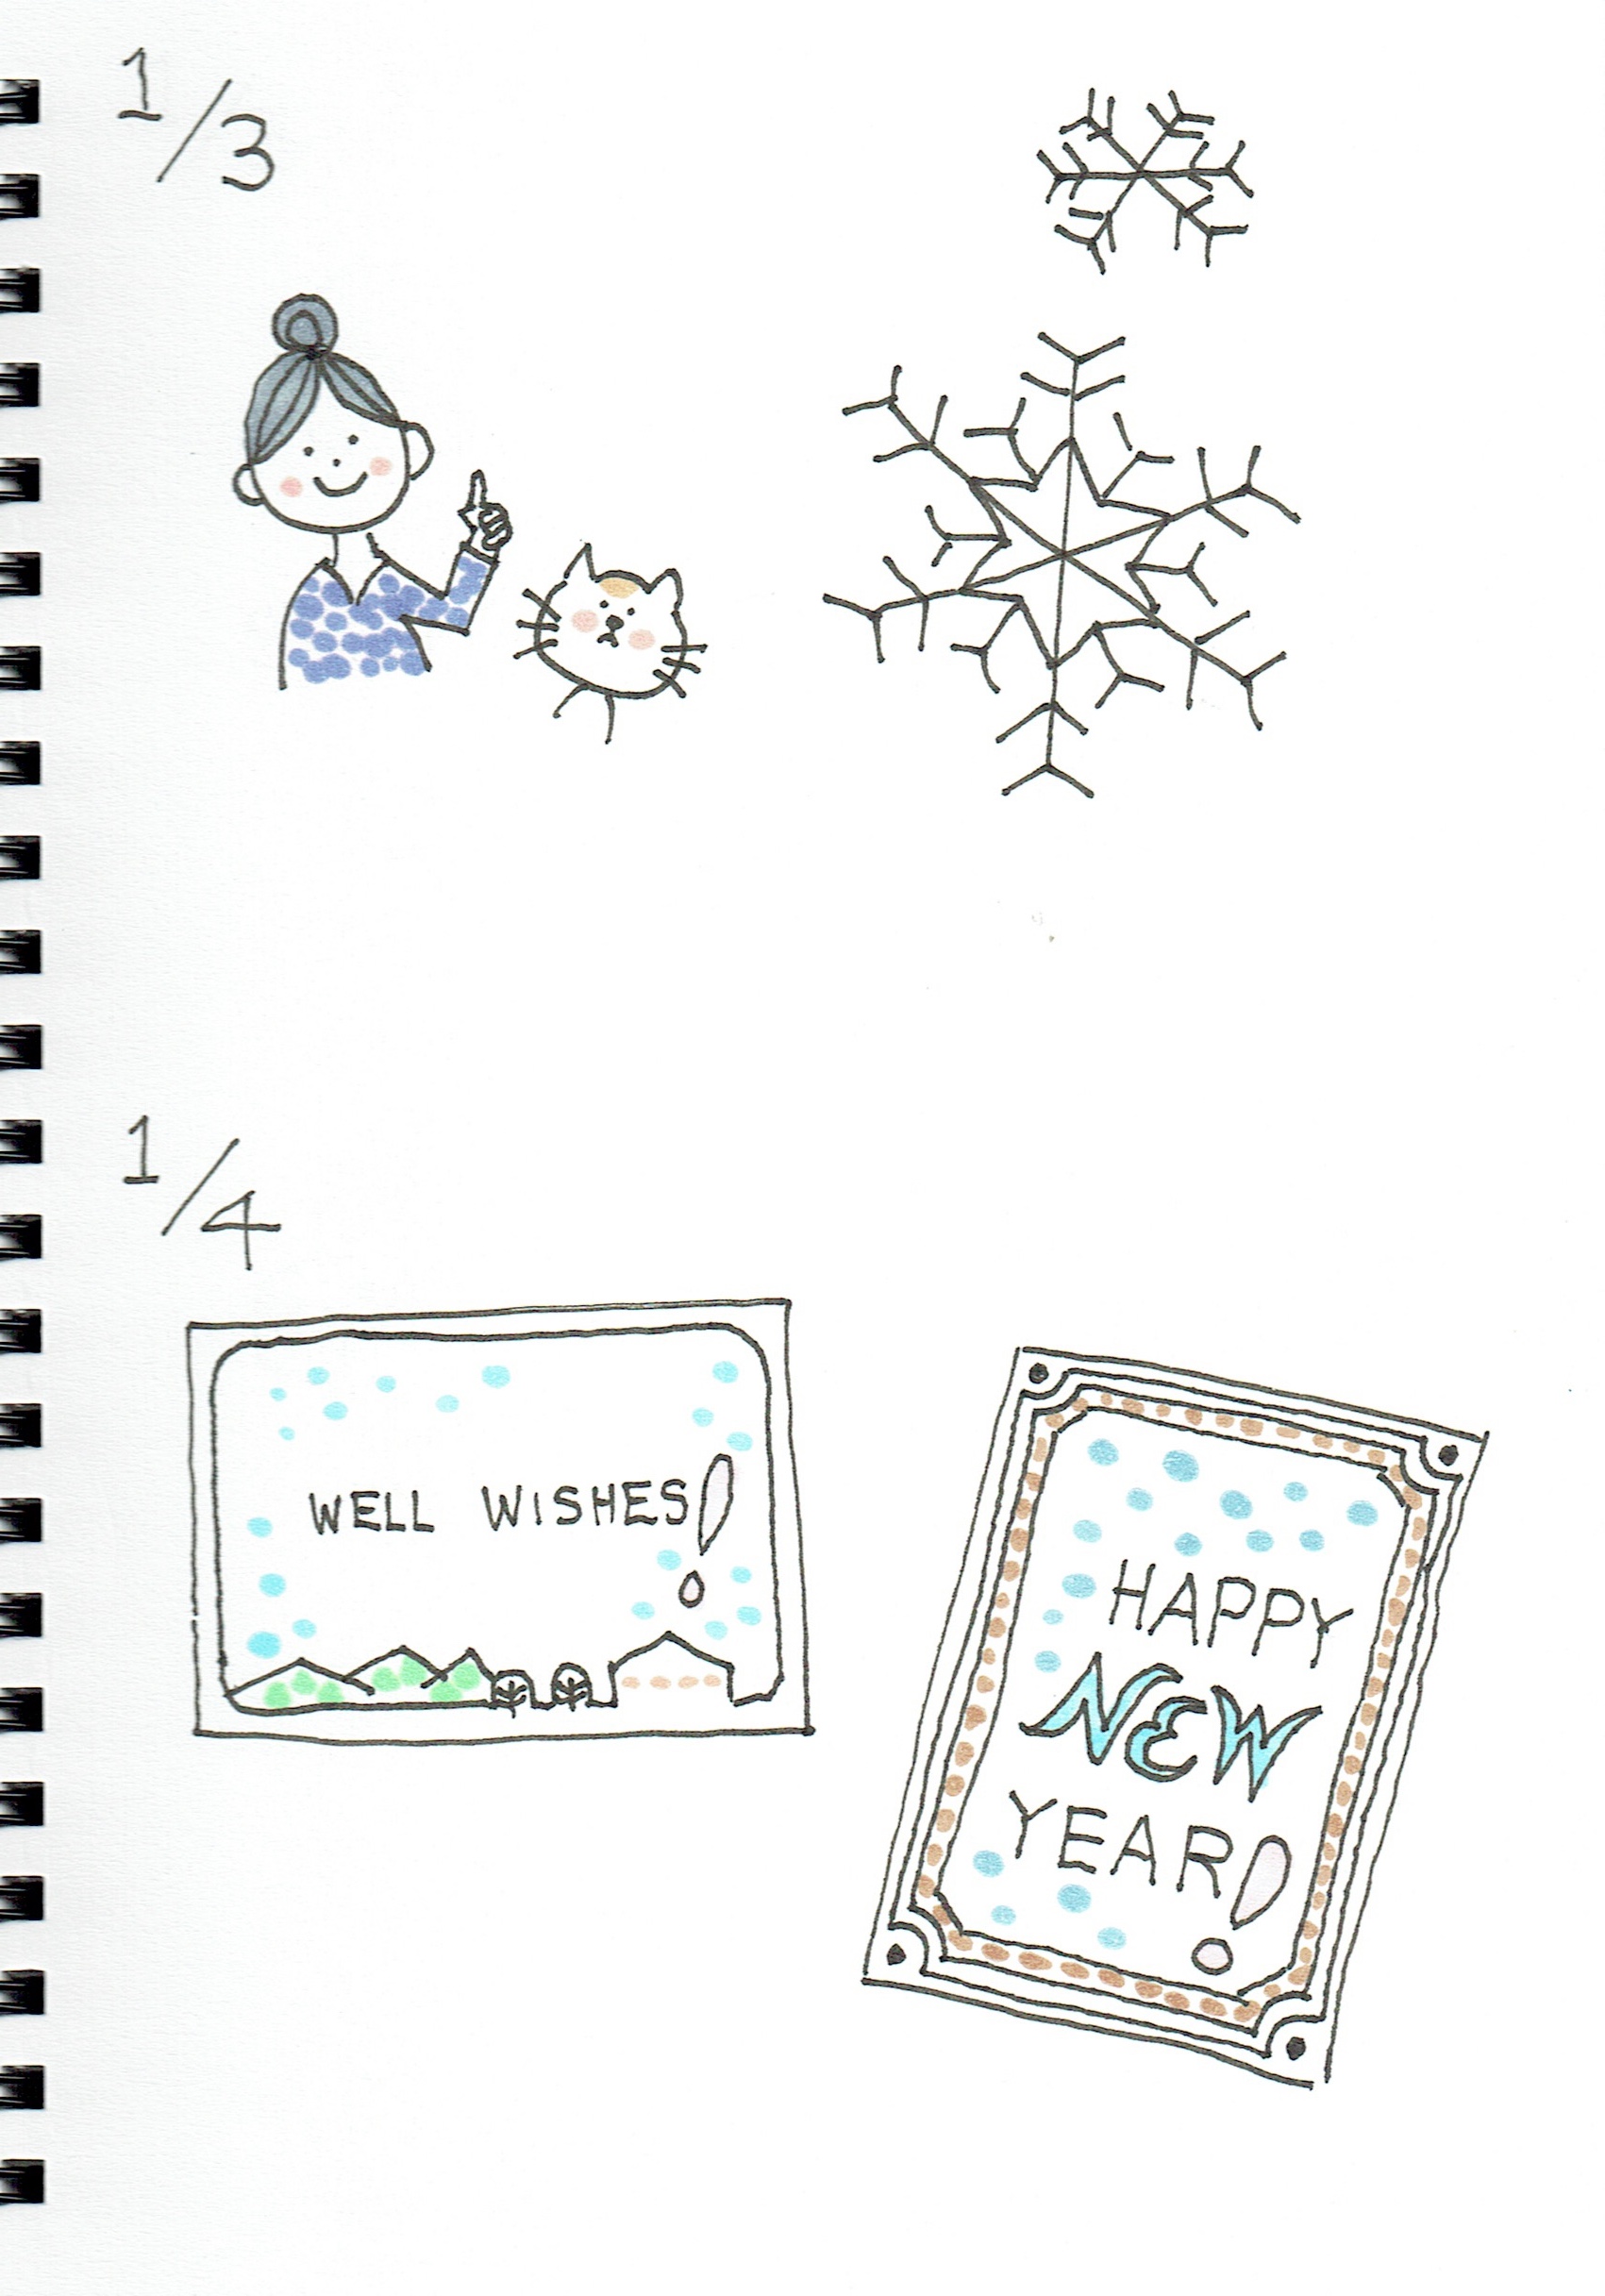 1/3
1/4
WELL WISHES!
HAPPY
NEW
YEAR!